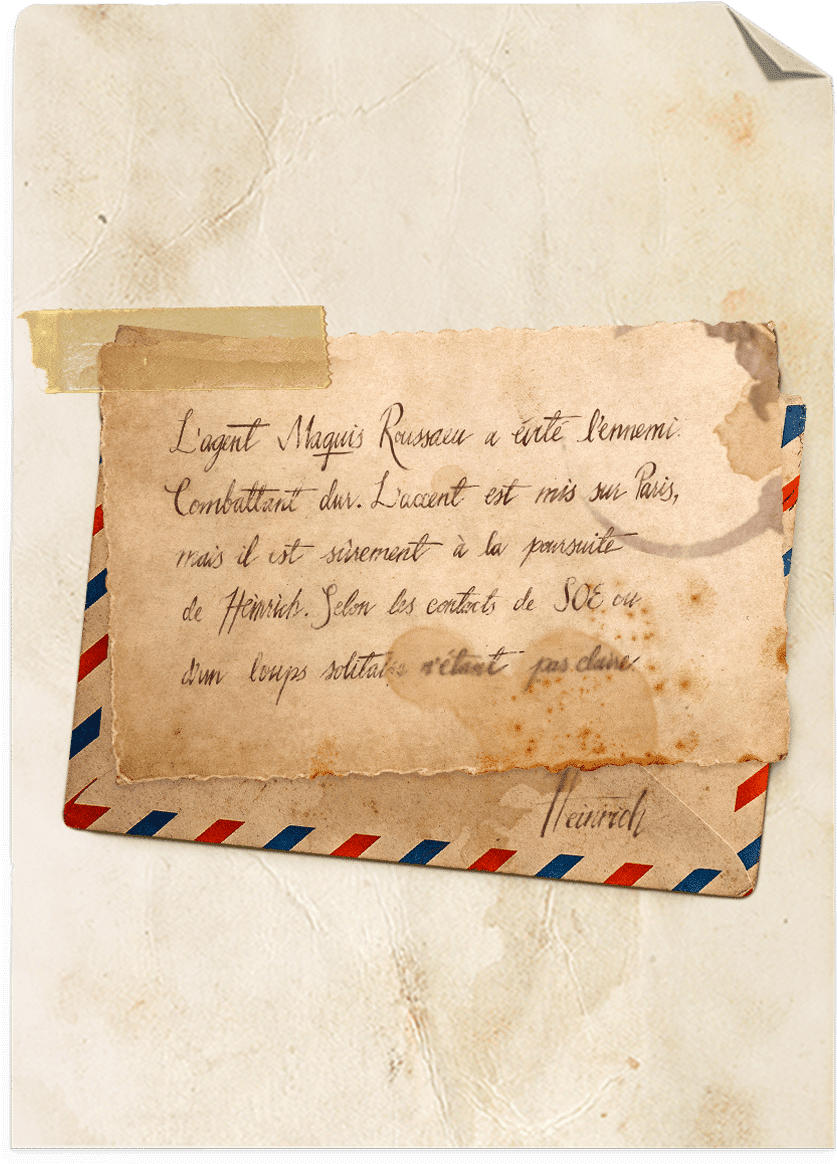 L'agent Maquis Roussaeu a évité l'ennemi.
Combattant dur. L'accent est mis sur Paris,
mais il est sûrement à la poursuite
de Heinrich. Selon les contacts de SOE ou
d'un loups solitaire n'étant pas claire.
Heinrich